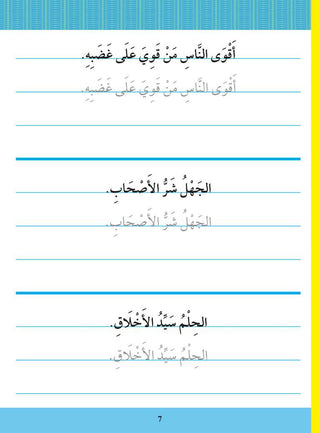 أَقْوَى النَّاسِ مَنْ قَوِيَ عَلَى غَضَبِهِ.
أَقْوَى النَّاسِ مَنْ قَوِيَ عَلَى غَضَبِهِ.
الجَهْلُ شَرُّ الأَصْحَابِ.
الجَهْلُ شَرُّ الأَصْحَابِ.
الحِلْمُ سَيِّدُ الأَخْلَاقِ.
الحِلْمُ سَيِّدُ الأَخْلَاقِ.
7